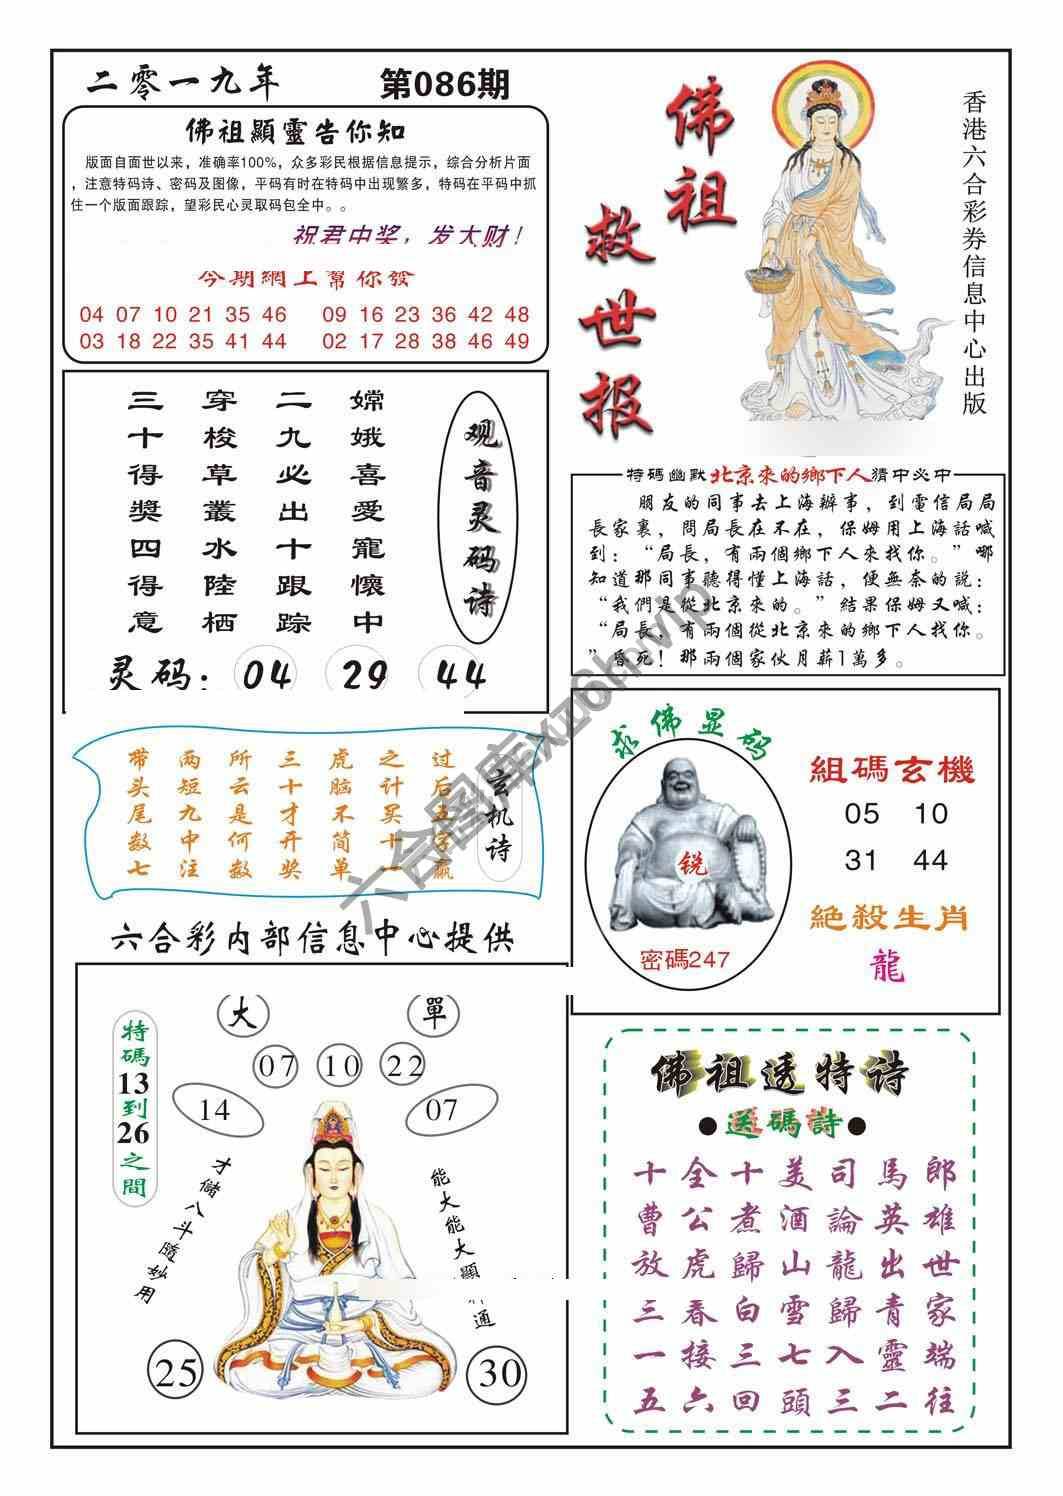 二零一九年
第086期
佛祖顯靈告你知
版面自面世以来，准确率100%，众多彩民根据信息提示，综合分析片面
，注意特码诗、密码及图像，平码有时在特码中出现繁多，特码在平码中抓
住一个版面跟踪，望彩民心灵取码包全中。。
祝君中奖，发大财！
今期網上幫你發
04 07 10 21 35 46 09 16 23 36 42 48
03 18 22 35 41 44 02 17 28 38 46 49
佛祖
救世报
香港六合彩券信息中心出版
观音灵码诗
嫦娥喜愛寵懷中
二九必出十跟踪
穿梭草叢水陸栖
三十得獎四得意
灵码：04 29 44
特碼幽默北京來的鄉下人猜中必中
朋友的同事去上海辦事，到電信局局
長家裏，問局長在不在，保姆用上海話喊
到：“局長，有兩個鄉下人來找你。”哪
知道那同事聽得懂上海話，便無奈的説：
“我們是從北京來的。”結果保姆又喊：
“局長，有兩個從北京來的鄉下人找你。
”昏死！那兩個家伙月薪1萬多。
玄机诗
过后五字赢
之计买十一
虎脑不简单
三十才开奖
所云是何数
两短九中注
带头尾数七
求佛显码
锐
密碼247
組碼玄機
05 10
31 44
絕殺生肖
龍
六合彩内部信息中心提供
大 單
07 10 22
14 07
特碼13到26之間
才儲八斗隨妙用
能大能大顯神通
25 30
佛祖透特诗
●送碼詩●
十全十美司馬郎
曹公煮酒論英雄
放虎歸山龍出世
三春白雪歸青家
一接三七入靈端
五六回頭三二往
六合图库xz6h.vip